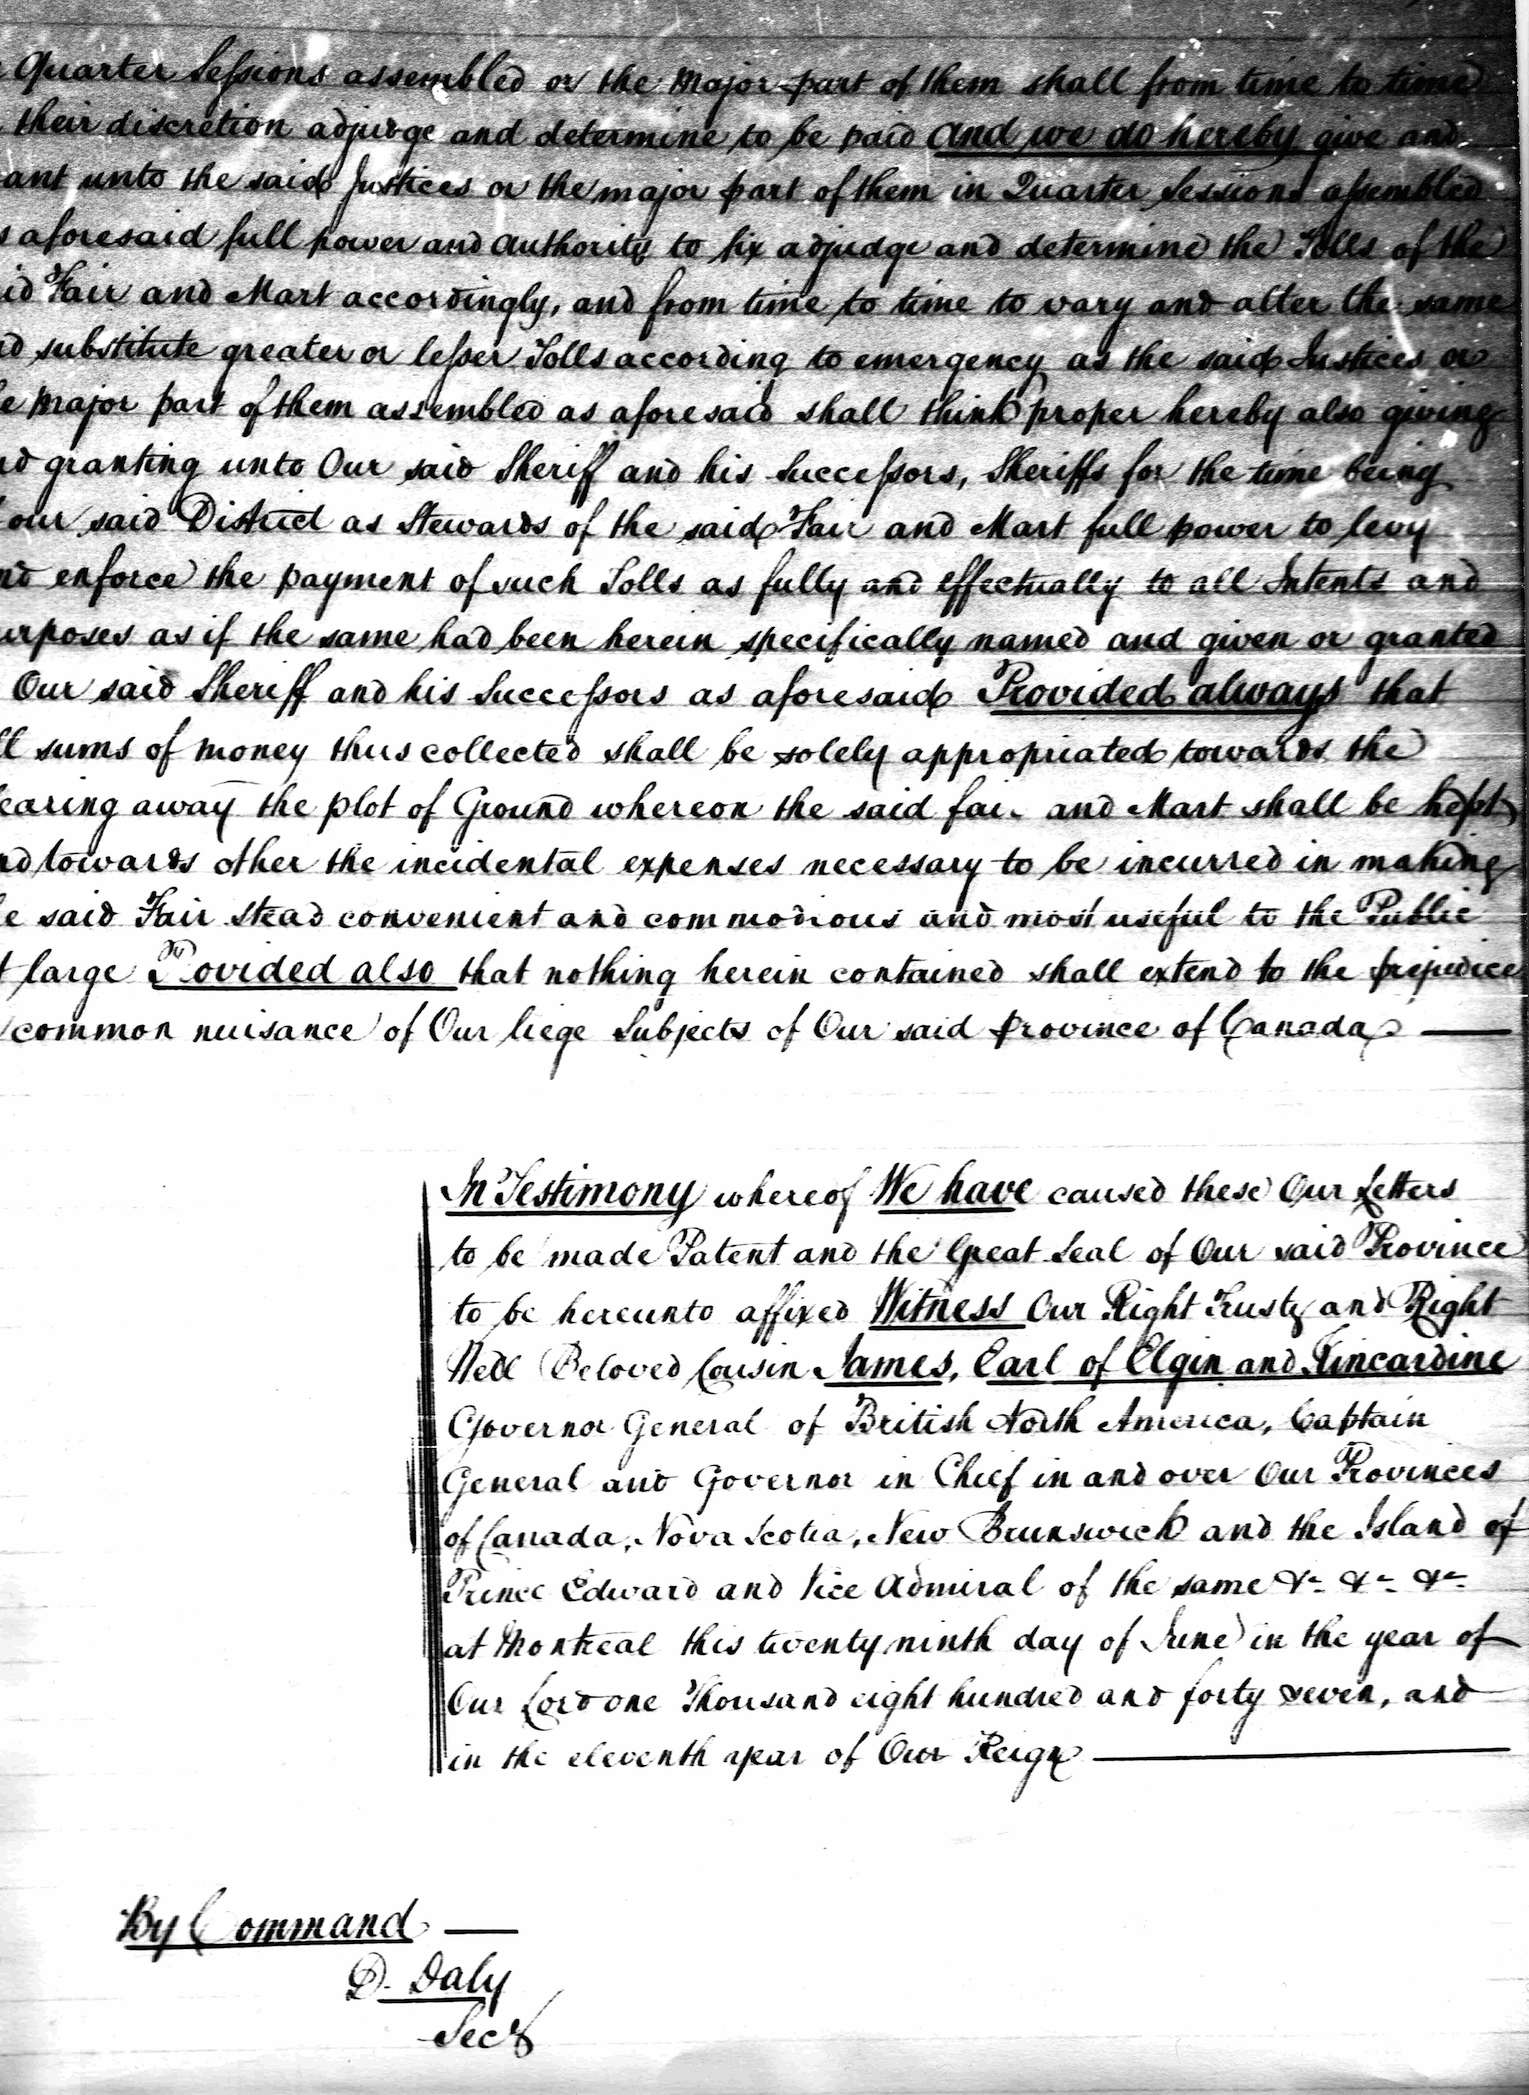 Quarter Sessions assembled or the Major part of them shall from time to time
their discretion adjudge and determine to be paid and we do hereby give and
ant unto the said Justices or the major part of them in Quarter Sessions assembled
s aforesaid full power and authority to fix adjudge and determine the Tolls of the
id Fair and Mart accordingly, and from time to time to vary and alter the same
nd substitute greater or lesser Tolls according to emergency as the said Justices or
e Major part of them assembled as aforesaid shall think proper hereby also giving
nd granting unto Our said Sheriff and his Successors, Sheriffs for the time being
our said District as Stewards of the said Fair and Mart full power to levy
nd enforce the payment of such Tolls as fully and effectually to all Intents and
urposes as if the same had been herein specifically named and given or granted
Our said Sheriff and his Successors as aforesaid Provided always that
ll sums of money thus collected shall be solely appropriated towards the
earing away the plot of Ground whereon the said fair and Mart shall be kept
nd towards other the incidental expenses necessary to be incurred in making
e said Fair stead convenient and commodious and most useful to the Public
t large Provided also that nothing herein contained shall extend to the prejudice
common nuisance of Our liege Subjects of Our said Province of Canada
In Testimony whereof We have caused these Our Letters
to be made Patent and the Great Seal of Our said Province
to be hereunto affixed Witness Our Right Trusty and Right
Well Beloved Cousin James, Earl of Elgin and Kincardine
Governor General of British North America, Captain
General and Governor in Chief in and over Our Provinces
of Canada, Nova Scotia, New Brunswick and the Island of
Prince Edward and Vice Admiral of the same &c &c &c
at Montreal this twenty ninth day of June in the year of
Our Lord one Thousand eight hundred and forty seven, and
in the eleventh year of Our Reign
By Command
D. Daly
Secy